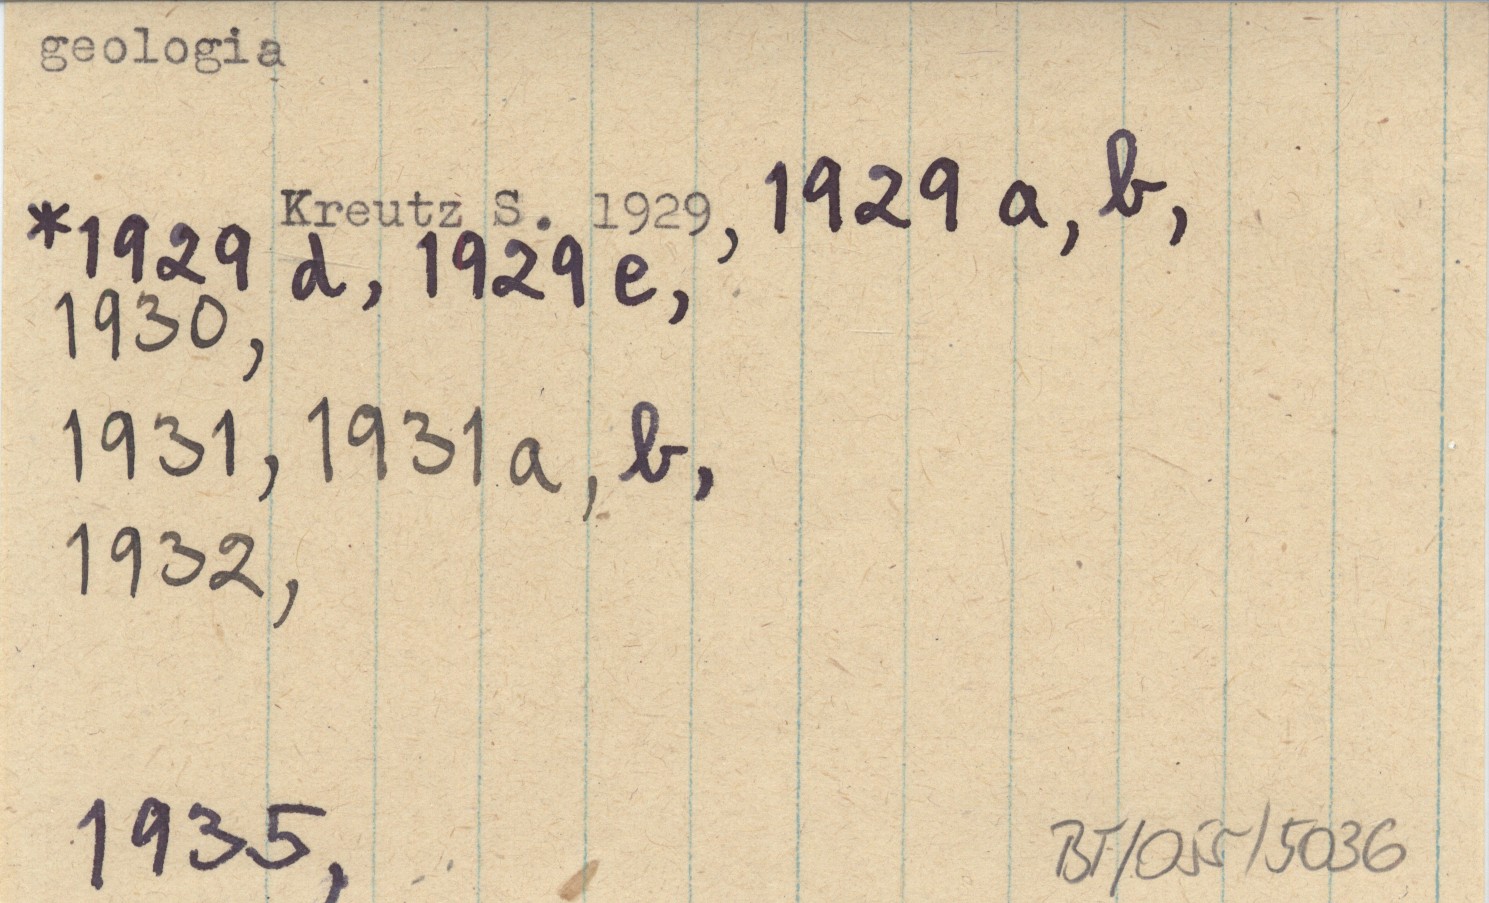 geologia
Kreutz S. 1929, 1929 a, b,
*1929 d, 1929 e,
1930,
1931, 1931 a, b,
1932,
1935,
BF/055/5036